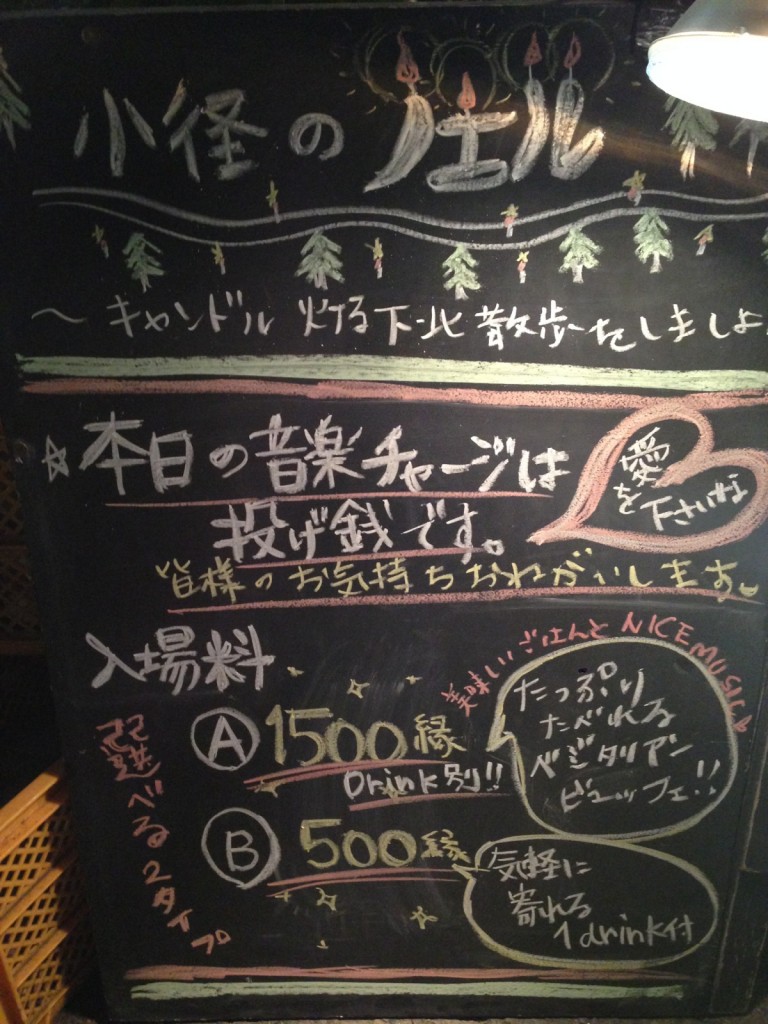 小径のノエル
〜キャンドル灯る下北散歩をしましょ
☆本日の音楽チャージは
投げ銭です。
愛
を
下さいな
皆様のお気持ちおねがいします。
入場料
選べる2タイプ
Ⓐ 1500縁
Drink別!!
美味しいごはんと NICE MUSIC♪
たっぷり
たべれる
ベジタリアン
ビュッフェ!!
Ⓑ 500縁
気軽に
寄れる
1drink付